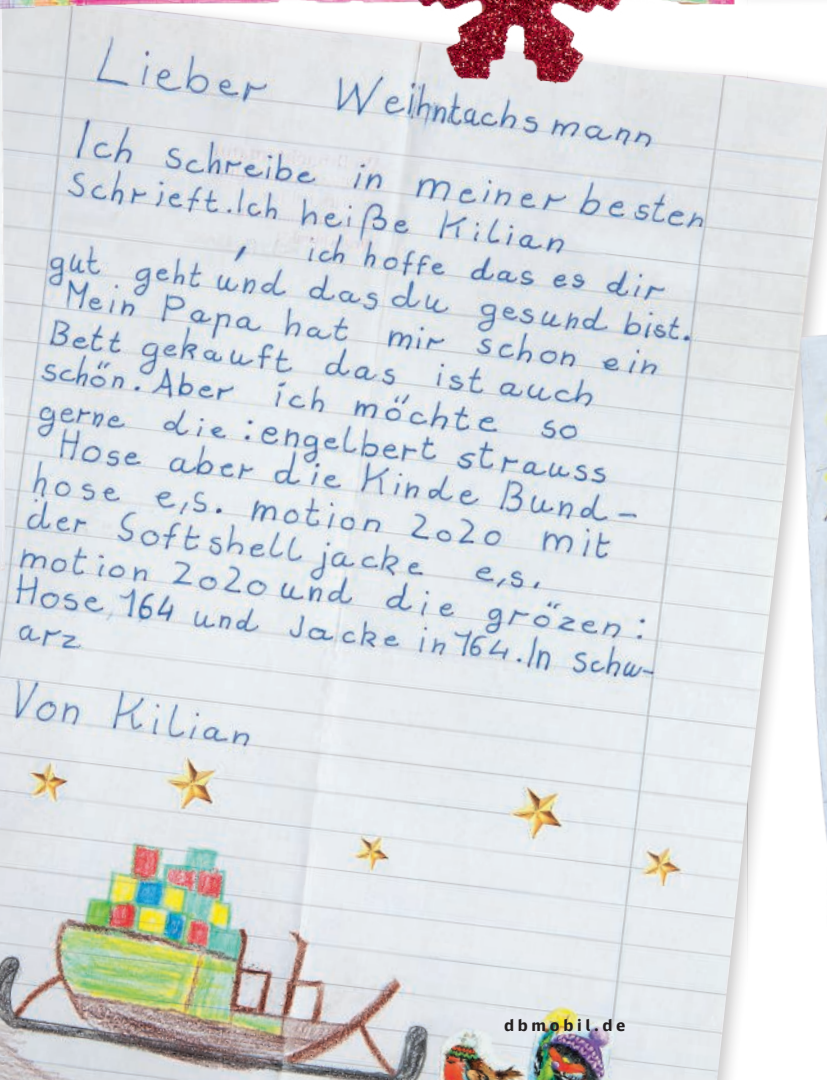 Lieber Weihntachsmann
Ich schreibe in meiner besten
Schrieft.Ich heiße Kilian
, ich hoffe das es dir
gut geht und das du gesund bist.
Mein Papa hat mir schon ein
Bett gekauft das ist auch
schön. Aber ich möchte so
gerne die: engelbert strauss
Hose aber die Kinde Bund-
hose e,s. motion 2020 mit
der Softshell jacke e,s.
motion 2020 und die grözen:
Hose, 164 und Jacke in 164. In schw-
arz
Von Kilian
dbmobil.de